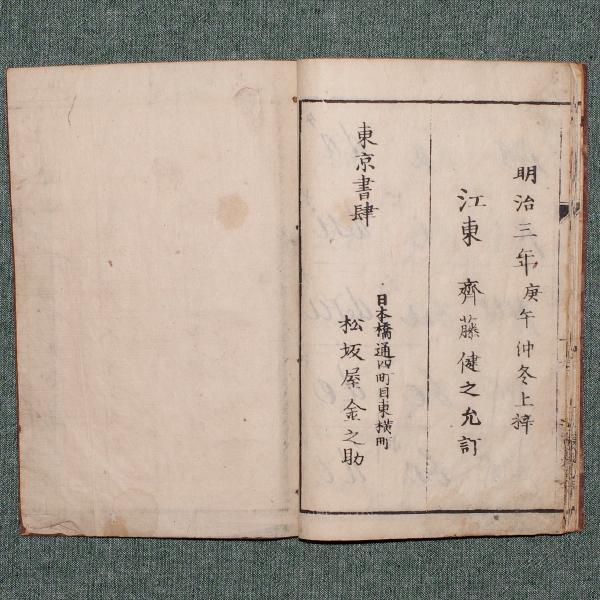 明治三年庚午仲冬上梓
江東 齊藤健之允訂
東京書肆
日本橋通四町目東横町
松坂屋金之助